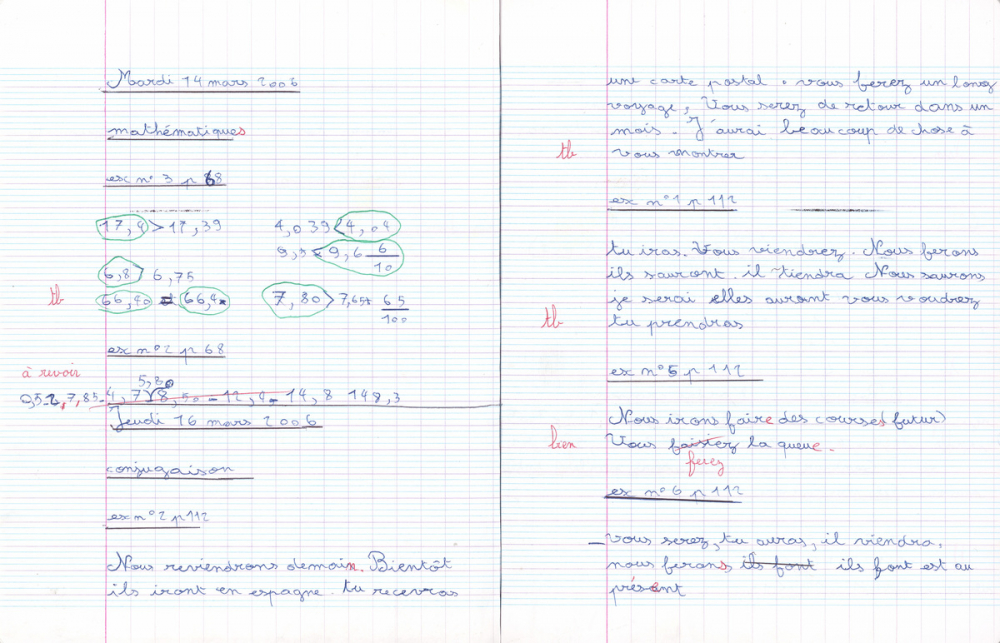 Mardi 14 mars 2006
mathématiques
ex n° 3 p 68
17,4 > 17,39 4,039 < 4,04
9,5 < 9,6 6/10
6,8 > 6,75
tb 66,40 = 66,4 7,80 > 7,65 65/100
ex n° 2 p 68
à revoir
5,80
7,85 - 4,7 8,50 - 12,4 - 14,8 148,3
Jeudi 16 mars 2006
conjugaison
ex n° 2 p 112
Nous reviendrons demain. Bientôt
ils iront en espagne. tu recevras
une carte postal. vous ferez un long
voyage, Vous serez de retour dans un
mois. J'aurai beaucoup de chose à
tb vous montrer
ex n° 1 p 112
tu iras. Vous viendrez. Nous ferons
ils sauront. il tiendra Nous saurons
je serai elles auront vous voudrez
tb tu prendras
ex n° 5 p 112
Nous irons faire des courses (futur)
bien Vous faisiez la queue.
ferez
ex n° 6 p 112
_vous serez, tu auras, il viendra,
nous ferons ils font ils font est au
présent